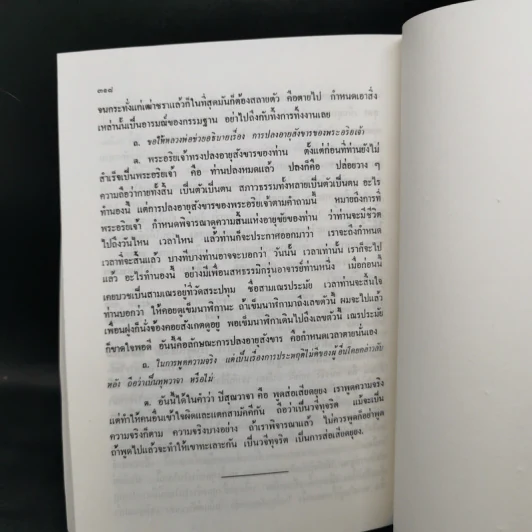 ๓๑๘
จนกระทั่งแก่เฒ่าชราแล้วก็ในที่สุดมันก็ต้องสลายตัว คือตายไป กำหนดเอาสิ่ง
เหล่านั้นเป็นอารมณ์ของกรรมฐาน อย่าไปถึงกับทิ้งการทิ้งงานเลย
ถ. ขอให้หลวงพ่อช่วยอธิบายเรื่อง การปลงอายุสังขารของพระอริยเจ้า
ต. พระอริยเจ้าทรงปลงอายุสังขารของท่าน ตั้งแต่ก่อนที่ท่านยังไม่
สำเร็จเป็นพระอริยเจ้า คือ ท่านปลงหมดแล้ว ปลงก็คือ ปล่อยวาง ๆ
ความถือว่ากายทั้งสิ้น เป็นตัวเป็นตน สภาวธรรมทั้งหลายเป็นตัวเป็นตน อะไร
ทำนองนี้ แต่การปลงอายุสังขารของพระอริยเจ้าตามคำถามนี้ หมายถึงการที่
พระอริยเจ้า กำหนดพิจารณาดูความสิ้นแห่งอายุขัยของท่าน ว่าท่านจะมีชีวิต
ไปถึงวันไหน เวลาไหน แล้วท่านก็จะประกาศออกมาว่า เราจะถึงกำหนด
เวลาที่จะสิ้นแล้ว บางทีบางท่านอาจจะบอกว่า วันนั้น เวลาเท่านั้น เราก็จะไป
แล้ว อะไรทำนองนี้ อย่างมีเพื่อนสหธรรมิกรุ่นอาจารย์ท่านหนึ่ง เมื่อก่อนนี้
เคยบวชเป็นสามเณรอยู่ที่วัดสระปทุม ชื่อสามเณรประมัย เวลาท่านจะสิ้นใจ
ท่านบอกว่า ให้คอยดูเข็มนาฬิกานะ ถ้าเข็มนาฬิกามาถึงเลขตัวนี้ ผมจะไปแล้ว
เพื่อนฝูงก็นั่งจ้องคอยสังเกตดูอยู่ พอเข็มนาฬิกาเดินไปถึงเลขตัวนี้ เณรประมัย
ก็ขาดใจพอดี อันนี้คือลักษณะการปลงอายุสังขาร คือกำหนดเวลาตายนั่นเอง
ถ. ในการพูดความจริง แต่เป็นเรื่องการประพฤติไม่ดีของผู้อื่นโดยกล่าวลับ
หลัง ถือว่าเป็นทุพวาจา หรือไม่
ต. อันนี้ได้ในคำว่า ปิสุณวาจา คือ พูดส่อเสียดยุยง เราพูดความจริง
แต่ทำให้คนอื่นเข้าใจผิดและแตกสามัคคีกัน ถือว่าเป็นวจีทุจริต แม้จะเป็น
ความจริงก็ตาม ความจริงบางอย่าง ถ้าเราพิจารณาแล้ว ไม่ควรพูดก็อย่าพูด
ถ้าพูดไปแล้วจะทำให้เขาทะเลาะกัน เป็นวจีทุจริต เป็นการส่อเสียดยุยง.